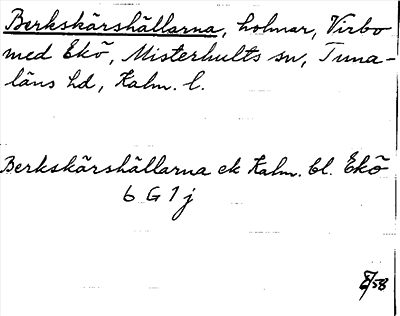 Berkskärshällarna, holmar, Virbo
med Ekö, Misterhults sn, Tuna-
läns hd, Kalm. l.
Berkskärshällarna ek Kalm. bl. Ekö
6 G 1 j
58